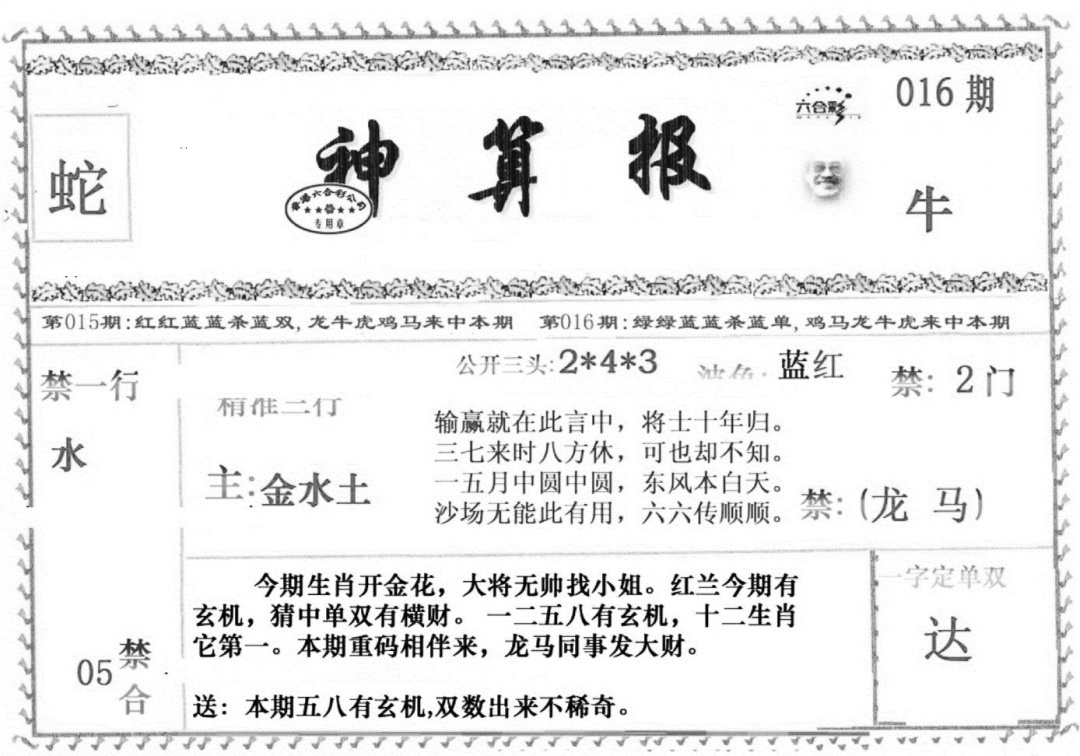 016期
六合彩
蛇
神算报
香港六合彩公司
专用章
牛
第015期:红红蓝蓝杀蓝双,龙牛虎鸡马来中本期 第016期:绿绿蓝蓝杀蓝单,鸡马龙牛虎来中本期
禁一行
水
公开三头:2*4*3
波色:蓝红
禁:2门
精准三行
主:金水土
输赢就在此言中，将士十年归。
三七来时八方休，可也却不知。
一五月中圆中圆，东风本白天。
沙场无能此有用，六六传顺顺。
禁:(龙 马)
今期生肖开金花，大将无帅找小姐。红兰今期有
玄机，猜中单双有横财。 一二五八有玄机，十二生肖
它第一。本期重码相伴来，龙马同事发大财。
送：本期五八有玄机,双数出来不稀奇。
05
禁
合
一字定单双
达